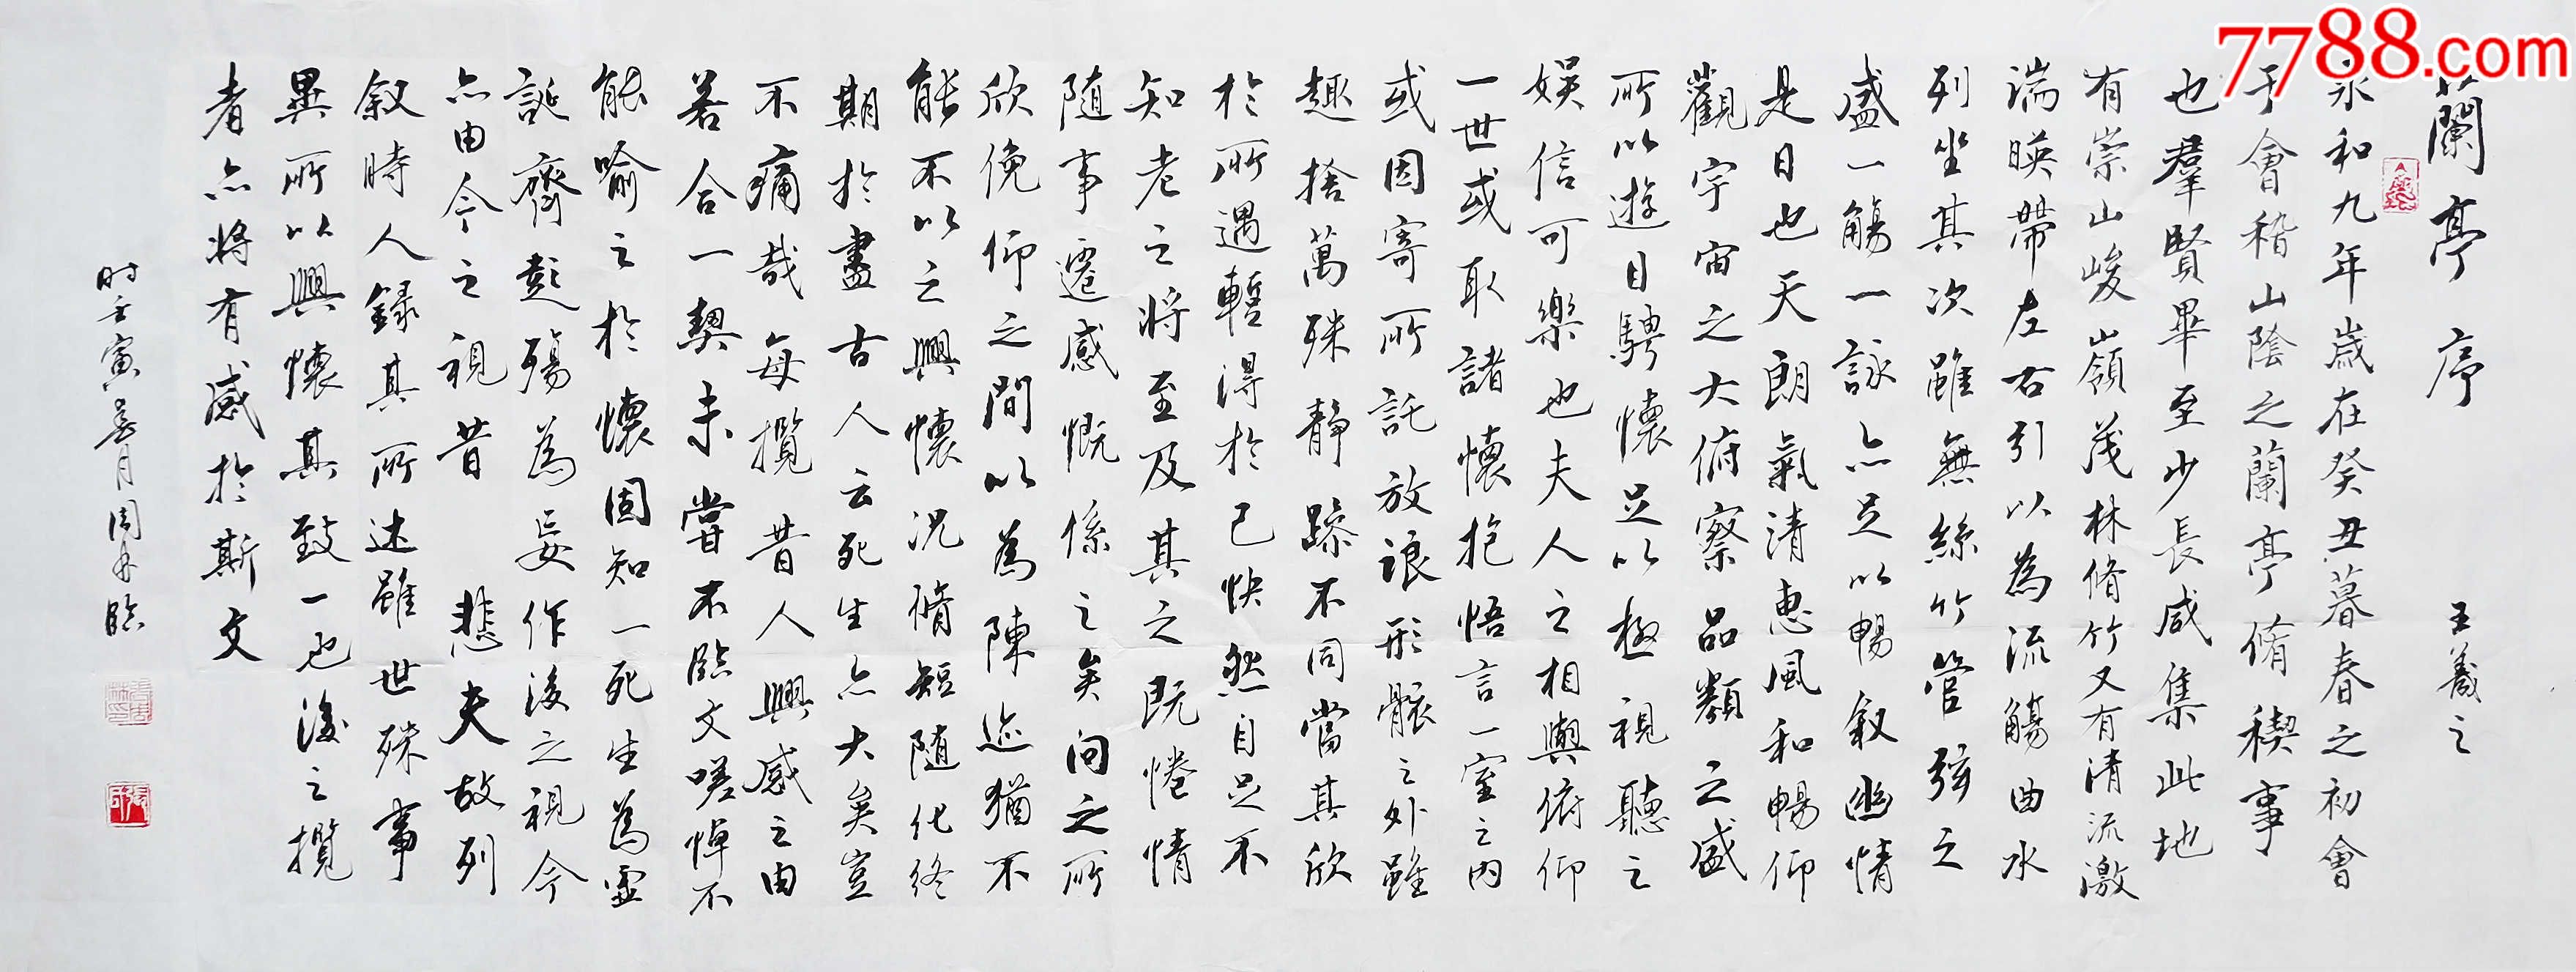 蘭亭序 王羲之
永和九年歲在癸丑暮春之初會
于會稽山陰之蘭亭脩禊事
也羣賢畢至少長咸集此地
有崇山峻嶺茂林脩竹又有清流激
湍暎帶左右引以為流觴曲水
列坐其次雖無絲竹管弦之
盛一觴一詠亦足以暢叙幽情
是日也天朗氣清惠風和暢仰
觀宇宙之大俯察品類之盛
所以遊目騁懷足以極視聽之
娛信可樂也夫人之相與俯仰
一世或取諸懷抱悟言一室之內
或因寄所託放浪形骸之外雖
趣捨萬殊靜躁不同當其欣
於所遇暫得於己快然自足不
知老之將至及其之既惓情
隨事遷感慨係之矣向之所
欣俛仰之間以為陳迹猶不
能不以之興懷況脩短隨化終
期於盡古人云死生亦大矣豈
不痛哉每攬昔人興感之由
若合一契未嘗不臨文嗟悼不
能喻之於懷固知一死生為虛
誕齊彭殤為妄作後之視今
亦由今之視昔悲夫故列
叙時人録其所述雖世殊事
異所以興懷其致一也後之攬
者亦將有感於斯文
时壬寅月周臨
7788.com